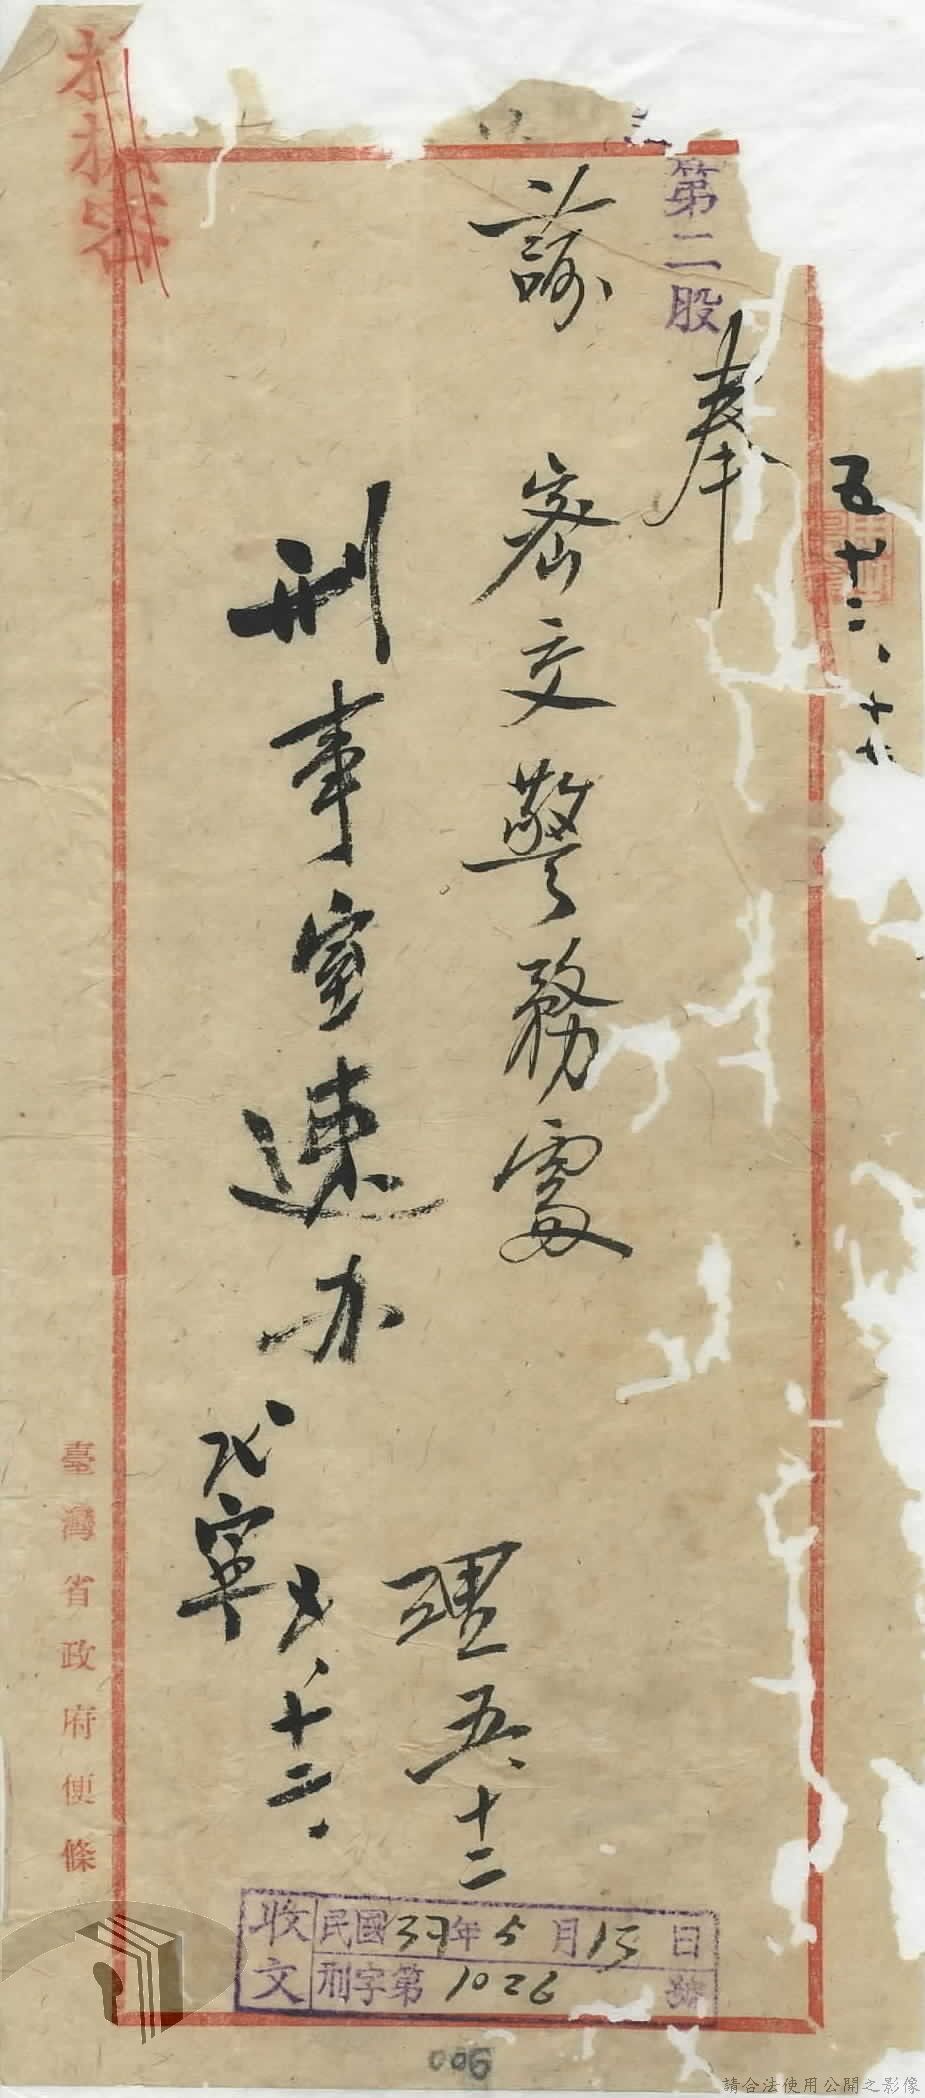 第二股
五、十二、十
奉
諭
密交警務處
理 五、十二
刑事室速办
五、十二、
臺灣省政府便條
收文 民國39年5月15日
刑字第1026號
006
請合法使用公開之影像